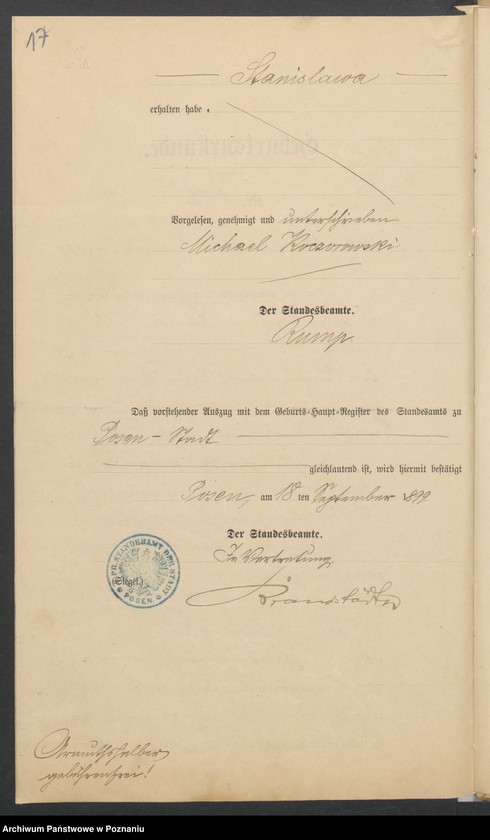 17
Stanislawa
erhalten habe.
Vorgelesen, genehmigt und unterschrieben
Michael Koczorowski
Der Standesbeamte.
Rump.
Daß vorstehender Auszug mit dem Geburts-Haupt-Register des Standesamts zu
Posen - Stadt
gleichlautend ist, wird hiermit bestätigt
Posen, am 18 ten September 1899
Der Standesbeamte.
In Vertretung
(Siegel.)
Brandstädter
PR. STANDESAMT STADT
POSEN
Armuthshalber
gebührenfrei!
Archiwum Państwowe w Poznaniu